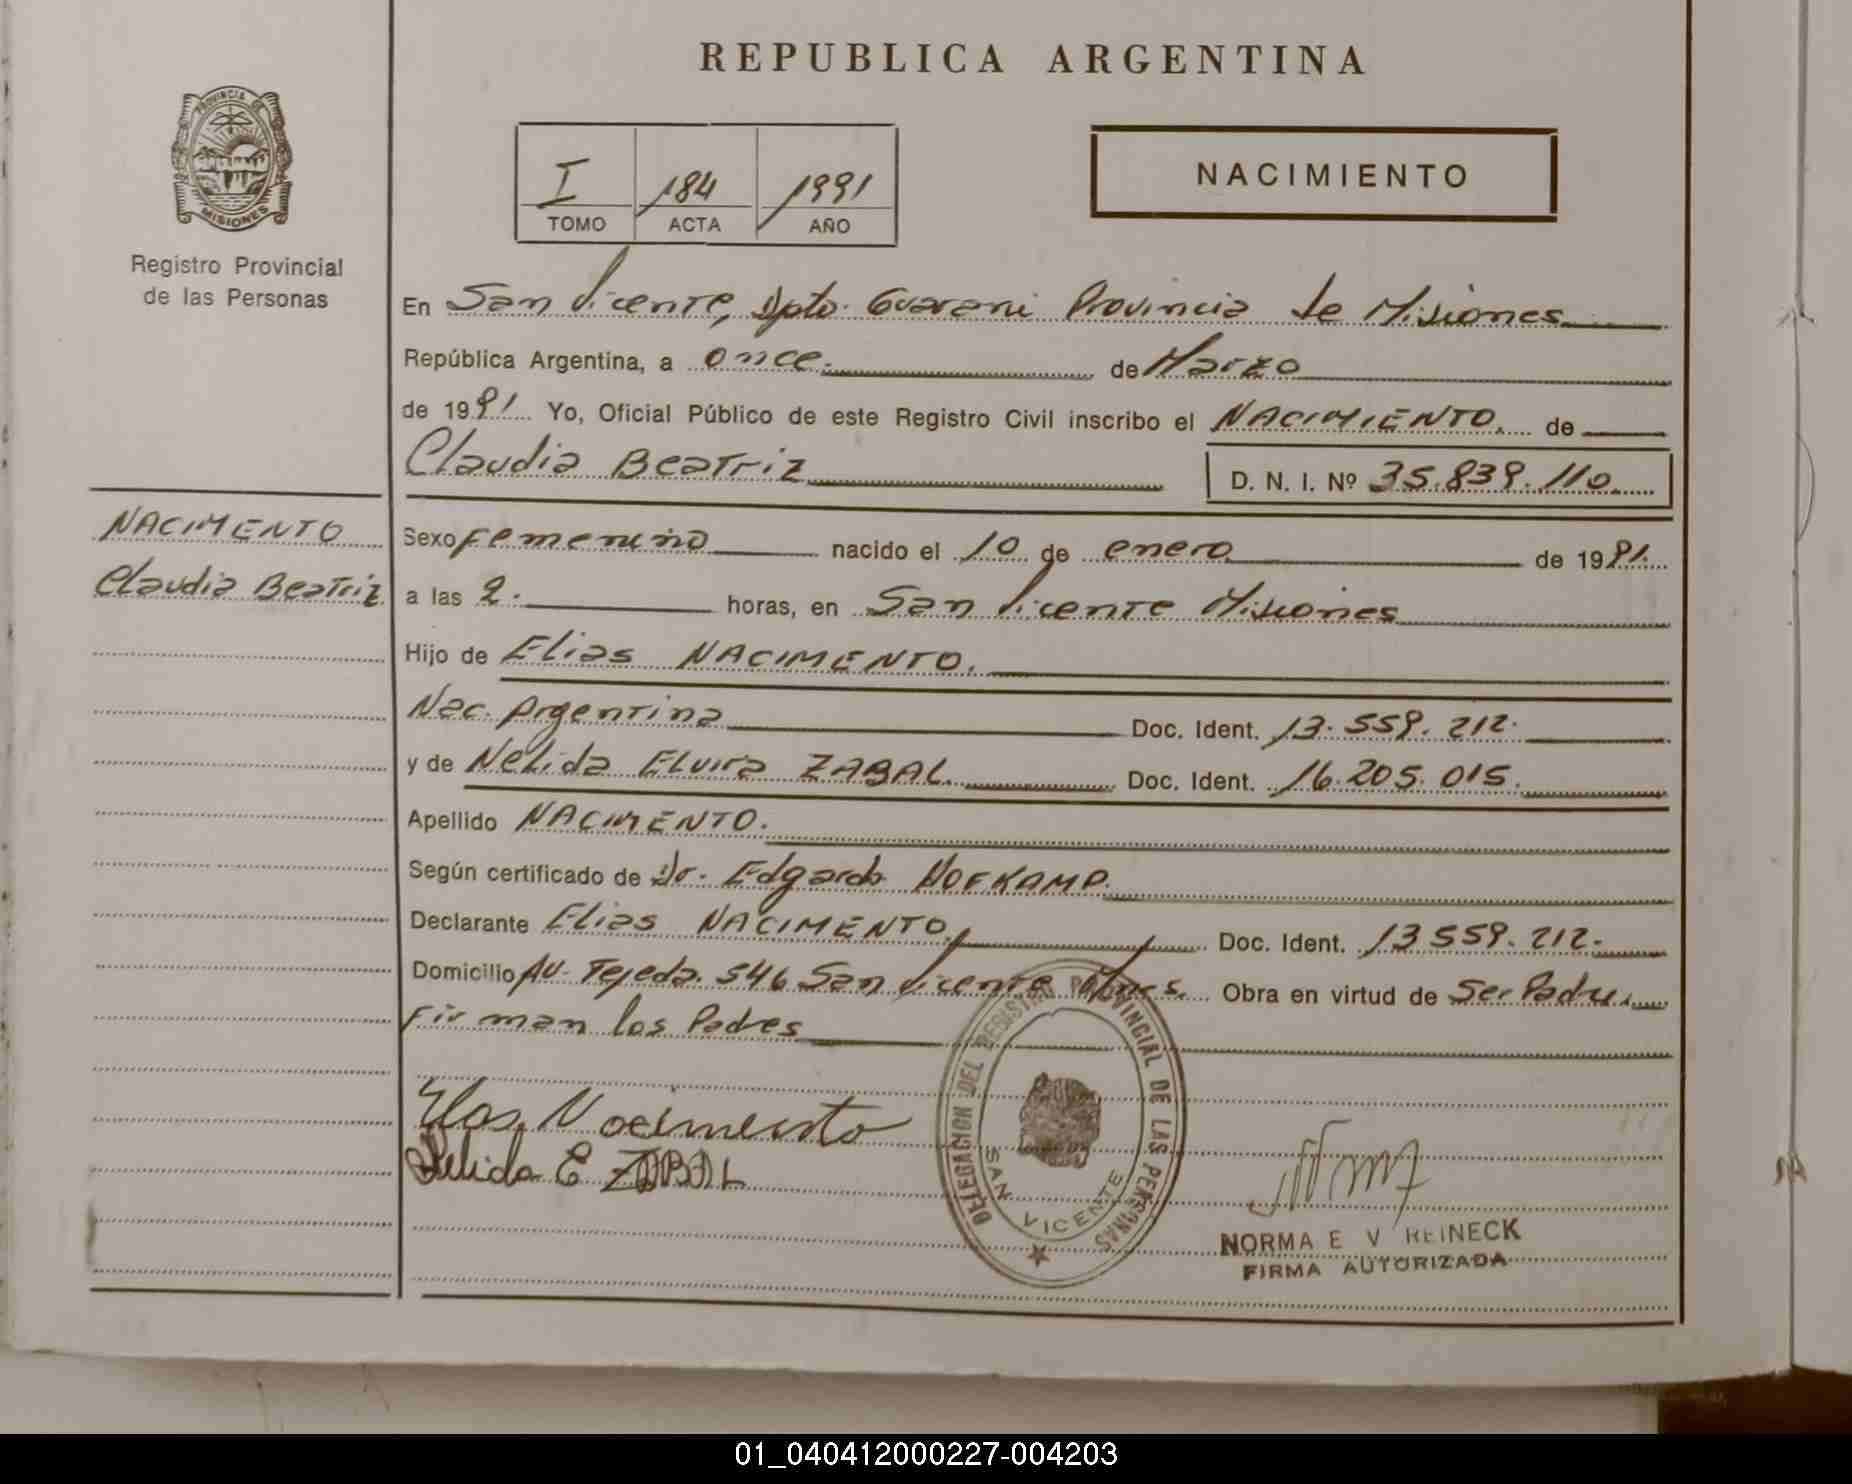 REPUBLICA ARGENTINA
PROVINCIA DE
MISIONES
Registro Provincial
de las Personas
I 184 1991
TOMO ACTA AÑO
NACIMIENTO
En San Vicente, Dpto. Guarani Provincia de Misiones
República Argentina, a once. de Marzo
de 1991. Yo, Oficial Público de este Registro Civil inscribo el NACIMIENTO. de
Claudia Beatriz
D. N. I. Nº 35.839.110.
NACIMENTO
Claudia Beatriz
Sexo femenino nacido el 10 de enero de 1991.
a las 2. horas, en San Vicente Misiones
Hijo de Elias NACIMENTO.
Nac. Argentina Doc. Ident. 13.559.212.
y de Nelida Elvira ZABAL. Doc. Ident. 16.205.015.
Apellido NACIMENTO.
Según certificado de Dr. Edgardo HOFKAMP.
Declarante Elias NACIMENTO. Doc. Ident. 13 559.212.
Domicilio Av. Tejeda. 546 San Vicente Mnes. Obra en virtud de Ser Padre.
Firman los Padres
Elias Nacimento
Nelida E ZABAL
DELEGACION DEL REGISTRO PROVINCIAL DE LAS PERSONAS
SAN VICENTE
NORMA E V REINECK
FIRMA AUTORIZADA
01_040412000227-004203